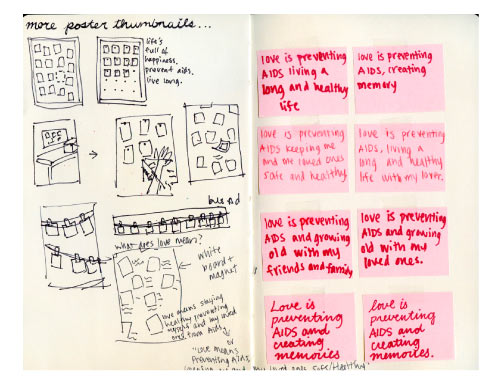 more poster thumbnails...
life's
full of
happiness.
prevent aids.
live long.
bus ad
what does love mean?
white
board +
magnet
love means staying
healthy preventing
and my loved
ones from aids.
or
"Love means
Preventing AIDS,
and my loved ones safe/Healthy"
love is preventing
AIDS living a
long and healthy
life
love is preventing
AIDS, creating
memory
love is preventing
AIDS keeping me
and me loved ones
safe and healthy.
love is preventing
AIDS, living a
long and healthy
life with my lover.
love is preventing
AIDS and growing
old with my
friends and family
love is preventing
AIDS and growing
old with my
loved ones.
Love is
preventing
AIDS and
creating
memories
love is
preventing
AIDS and
creating
memories.